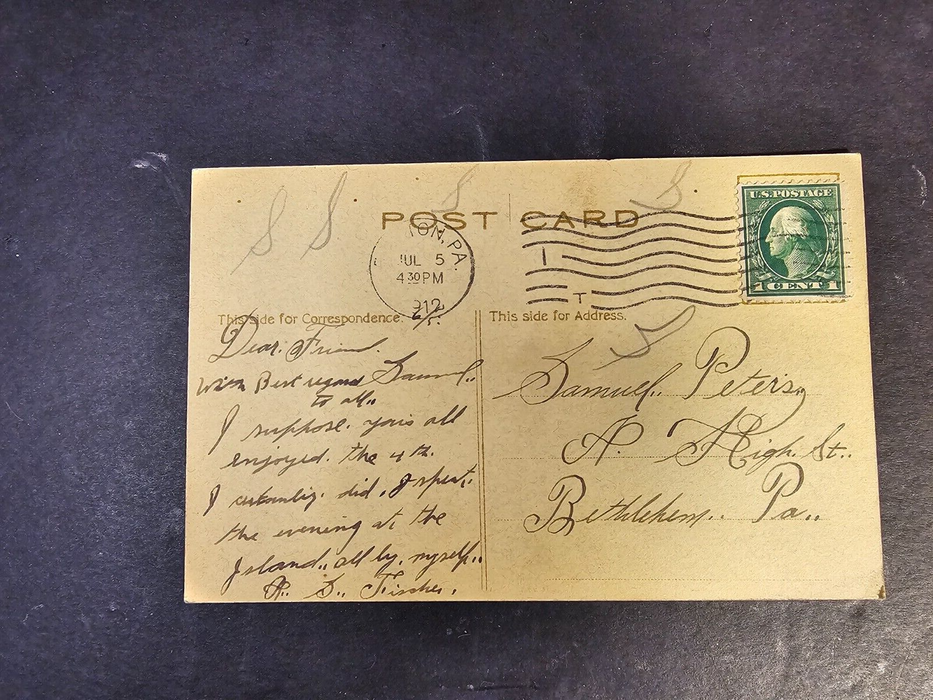 POST CARD
U.S. POSTAGE
1 CENT 1
ON, PA.
JUL 5
4 30 PM
1912
T
This side for Correspondence.
This side for Address.
Dear. Friend.
With Best regard Samuel..
to all..
I suppose. yous all
enjoyed. the 4 th.
I certainly. did. I spent.
the evening at the
Island.. all by. myself..
A.. S.. Fischer.
Samuel.. Peters,
N. High. St..
Bethlehem.. Pa..